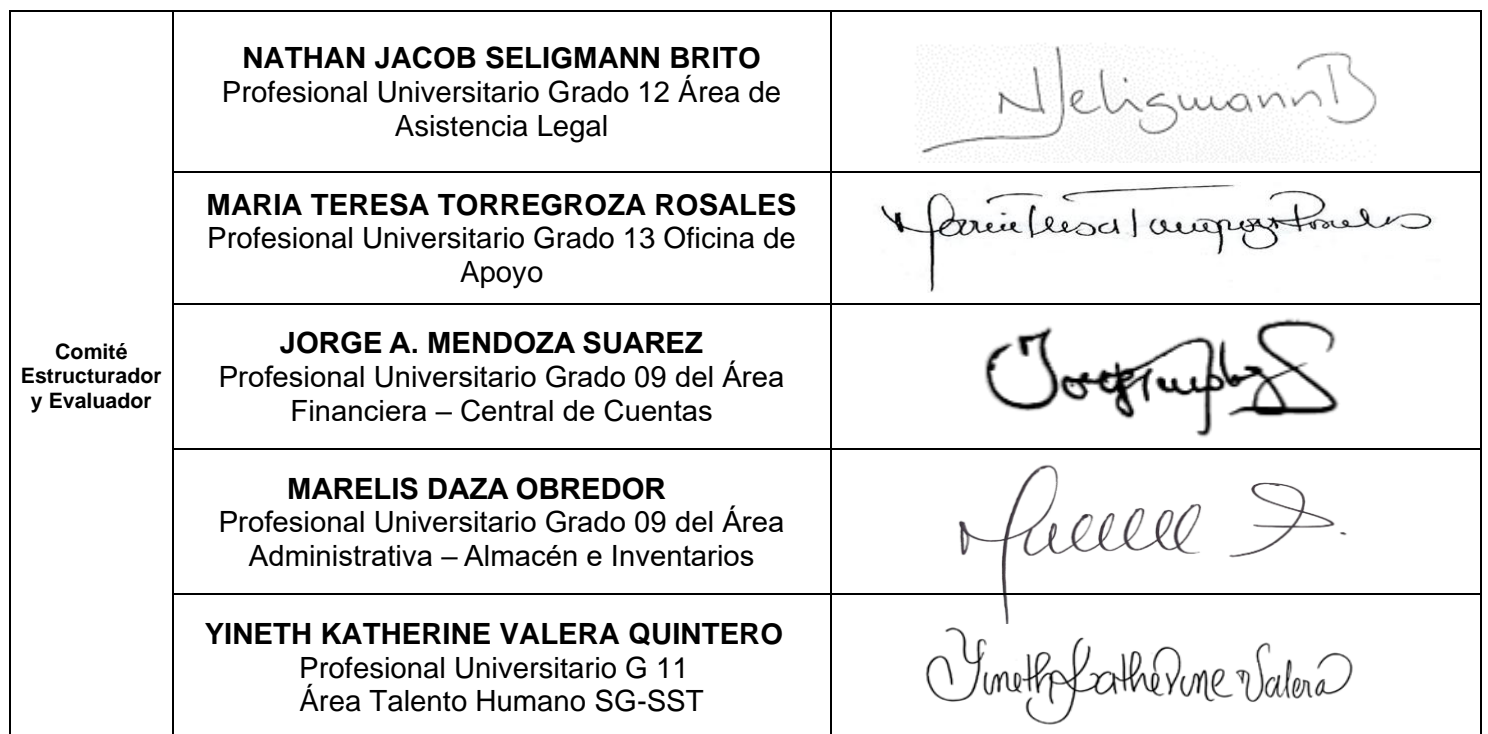 Comité
Estructurador
y Evaluador
NATHAN JACOB SELIGMANN BRITO
Profesional Universitario Grado 12 Área de
Asistencia Legal
NSeligmannB
MARIA TERESA TORREGROZA ROSALES
Profesional Universitario Grado 13 Oficina de
Apoyo
JORGE A. MENDOZA SUAREZ
Profesional Universitario Grado 09 del Área
Financiera – Central de Cuentas
MARELIS DAZA OBREDOR
Profesional Universitario Grado 09 del Área
Administrativa – Almacén e Inventarios
YINETH KATHERINE VALERA QUINTERO
Profesional Universitario G 11
Área Talento Humano SG-SST
Yineth Katherine Valera